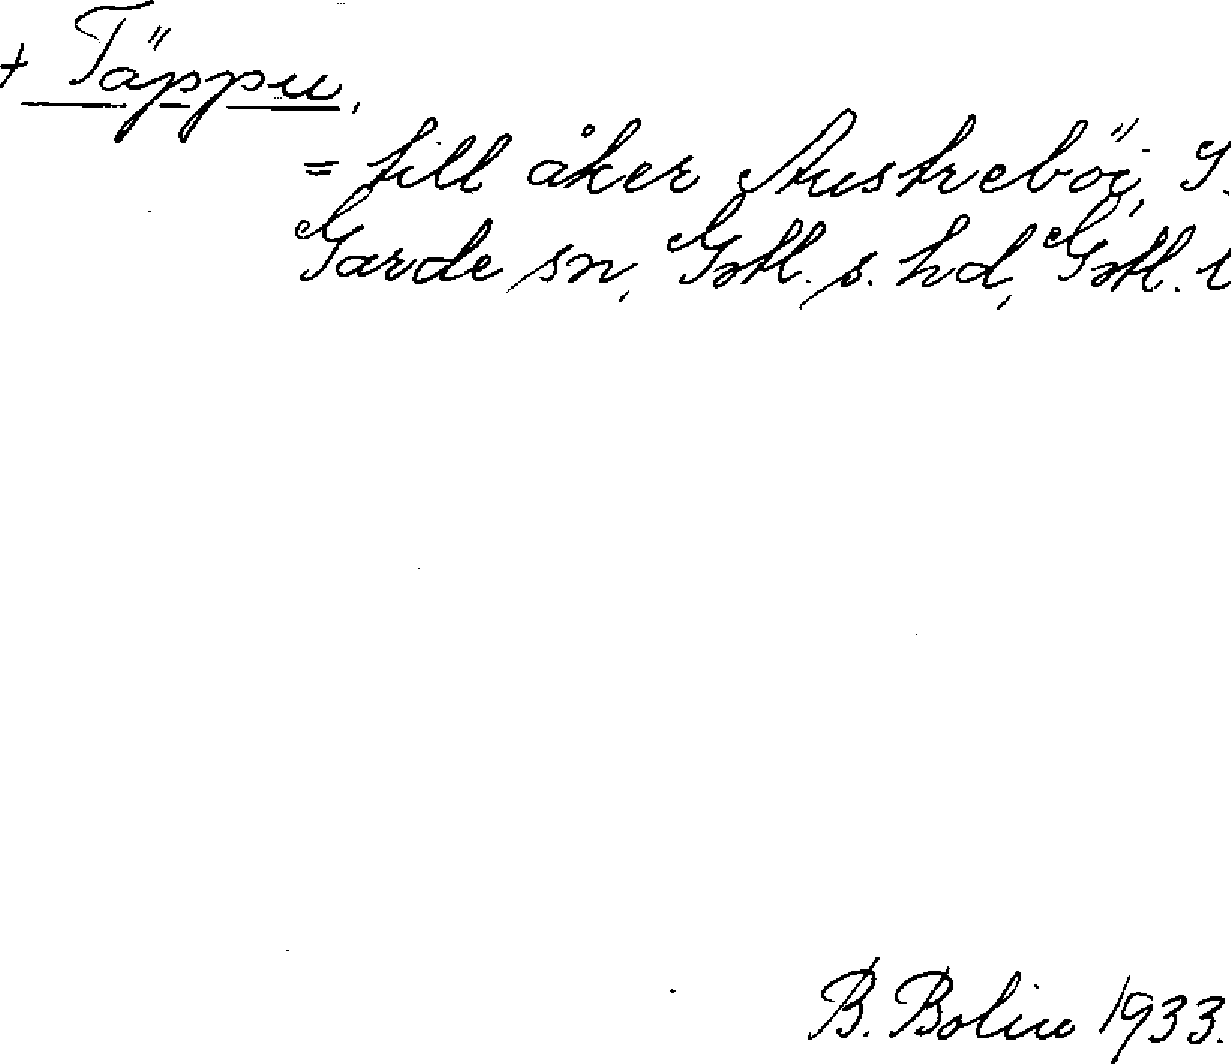 + Täppu,
= till åker Austreböi, S.
Garde sn, Gotl. s. hd, Gotl. l
B. Bolin 1933.